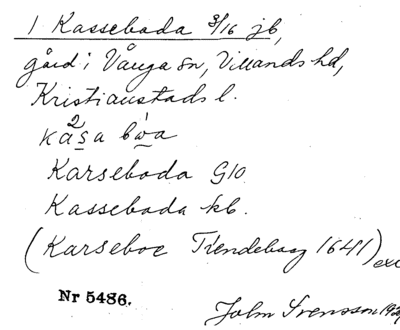 1 Kasseboda 3/16 jb,
gård i Vånga sn, Villands hd,
Kristianstads l.
Karseboda G10.
Kasseboda kb.
(Karseboe Tiendebog 1641) exc
Nr 5486.
John Svensson